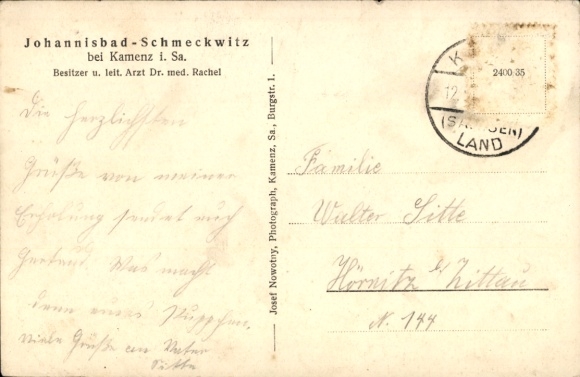 Johannisbad-Schmeckwitz
bei Kamenz i. Sa.
Besitzer u. leit. Arzt Dr. med. Rachel
Die herzlichsten
Grüße von meiner
Erholung sendet euch
Gertrud. Was macht
denn euer Püppchen.
Viele Grüße an Vater
Sitte
Josef Nowotny, Photograph, Kamenz, Sa., Burgstr. 1.
K
12.
2400 35
(SACHSEN)
LAND
Familie
Walter Sitte
Hörnitz b/ Zittau
N. 144